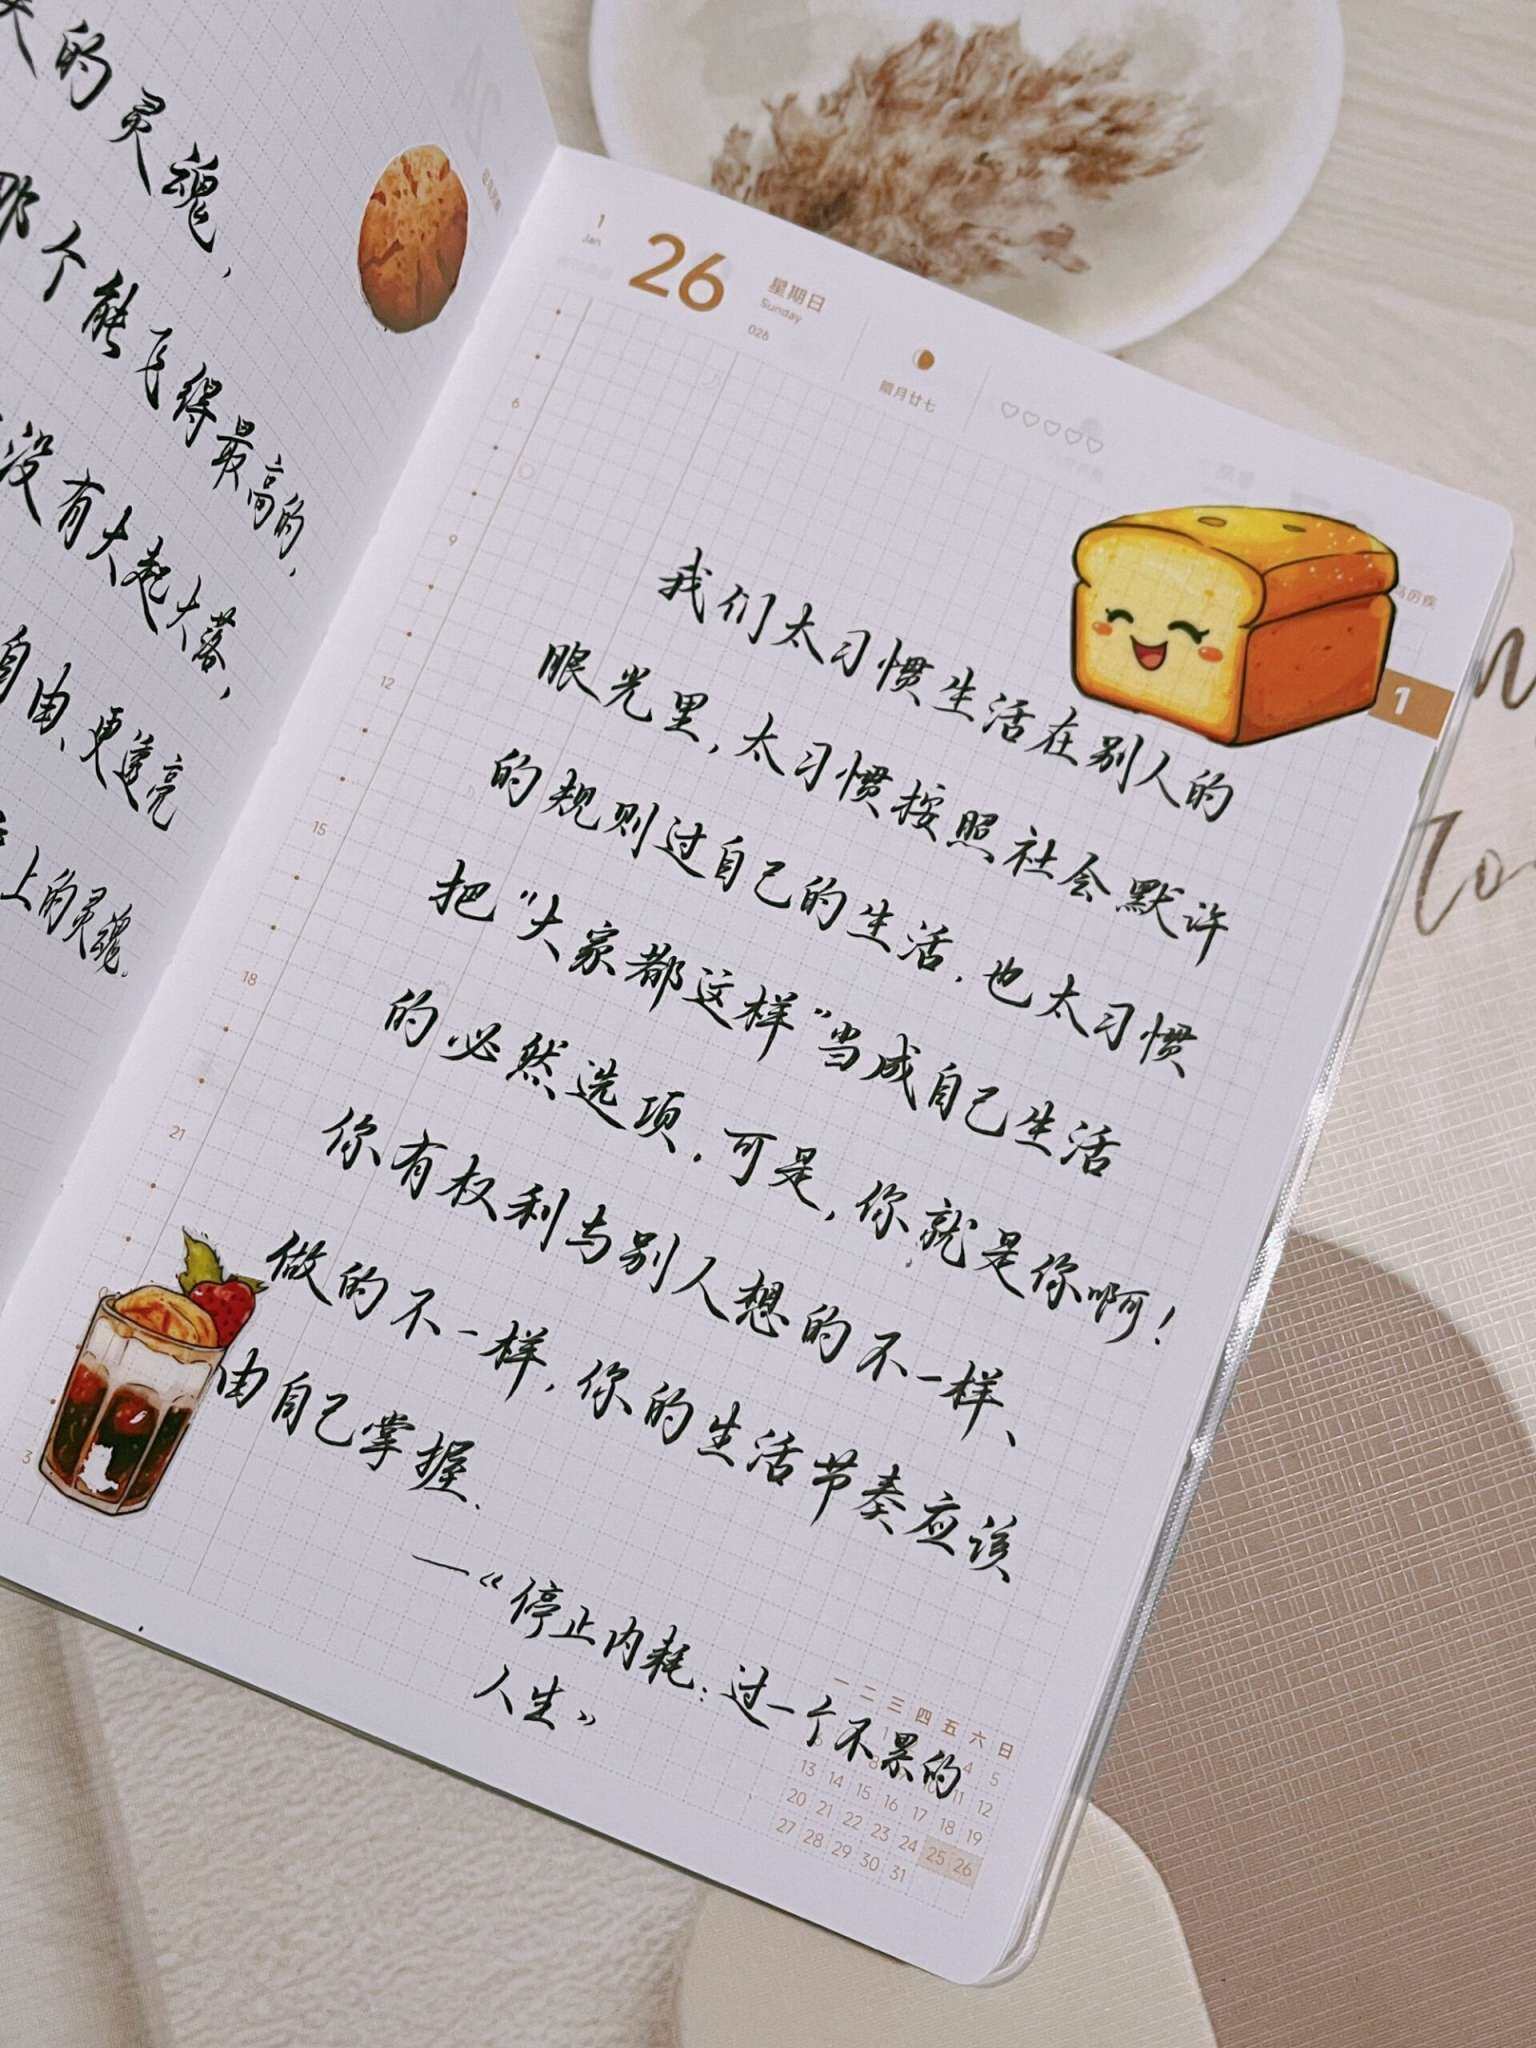 的灵魂,
那个能飞得最高的,
没有大起大落,
自由、更透亮
上的灵魂.
1
Jan
26
星期日
Sunday
026
腊月廿七
1
6
9
12
15
18
21
3
我们太习惯生活在别人的
眼光里,太习惯按照社会默许
的规则过自己的生活.也太习惯
把“大家都这样”当成自己生活
的必然选项.可是,你就是你啊!
你有权利与别人想的不一样、
做的不一样,你的生活节奏应该
由自己掌握.
—《停止内耗:过一个不累的
人生》
一 二 三 四 五 六 日
4 5
11 12
13 14 15 16 17 18 19
20 21 22 23 24 25 26
27 28 29 30 31